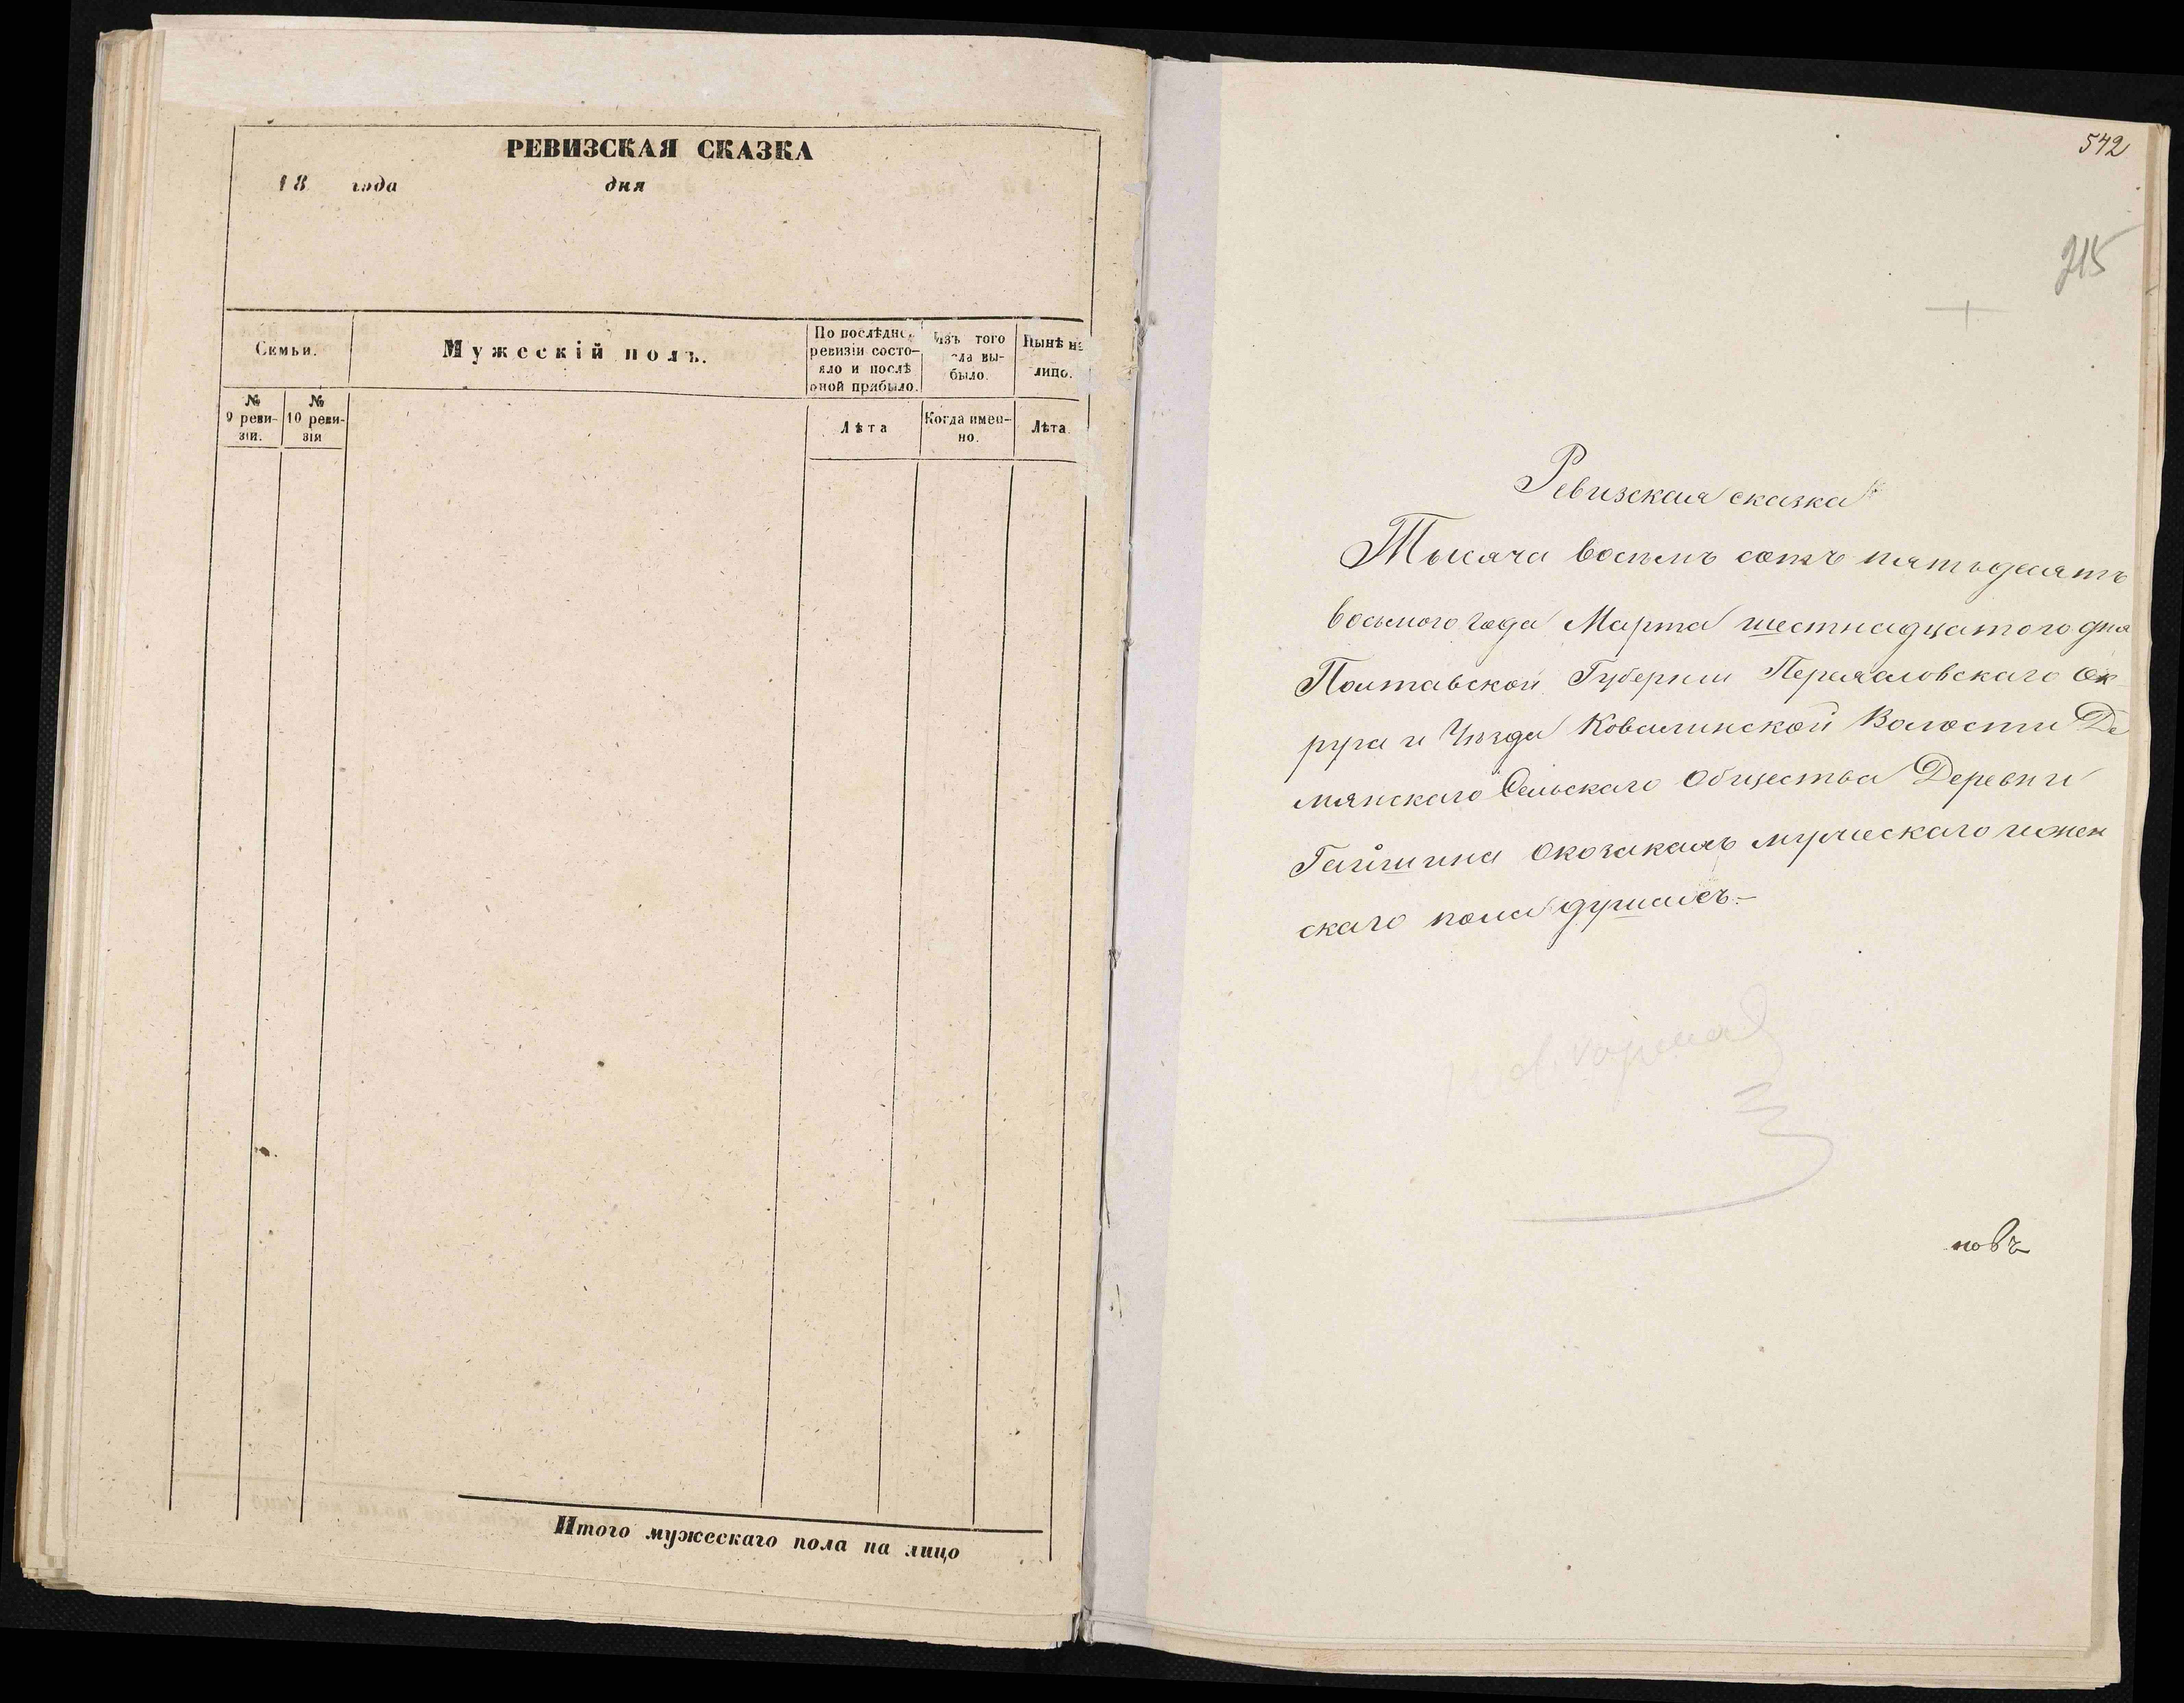 РЕВИЗСКАЯ СКАЗКА
18 года дня
Семьи.
Мужескій полъ.
По послѣдней
ревизіи состо-
яло и послѣ
оной прибыло.
Изъ того
числа вы-
было.
Нынѣ на
лицо.
№
9 реви-
зіи.
№
10 реви-
зія
Лѣта
Когда имен-
но.
Лѣта.
Итого мужескаго пола на лицо
542
215
Ревизская сказка
Тысяча восемь сотъ пятьдесятъ
восьмого года Марта шестнадцатого дня
Полтавской Губерніи Переяславскаго Ок
руга и Уѣзда Ковалинской Волости Де
мянскаго Сельскаго Общества Деревни
Гайшина Окозакахъ мужескаго ижен
скаго пола душахъ.-
новъ